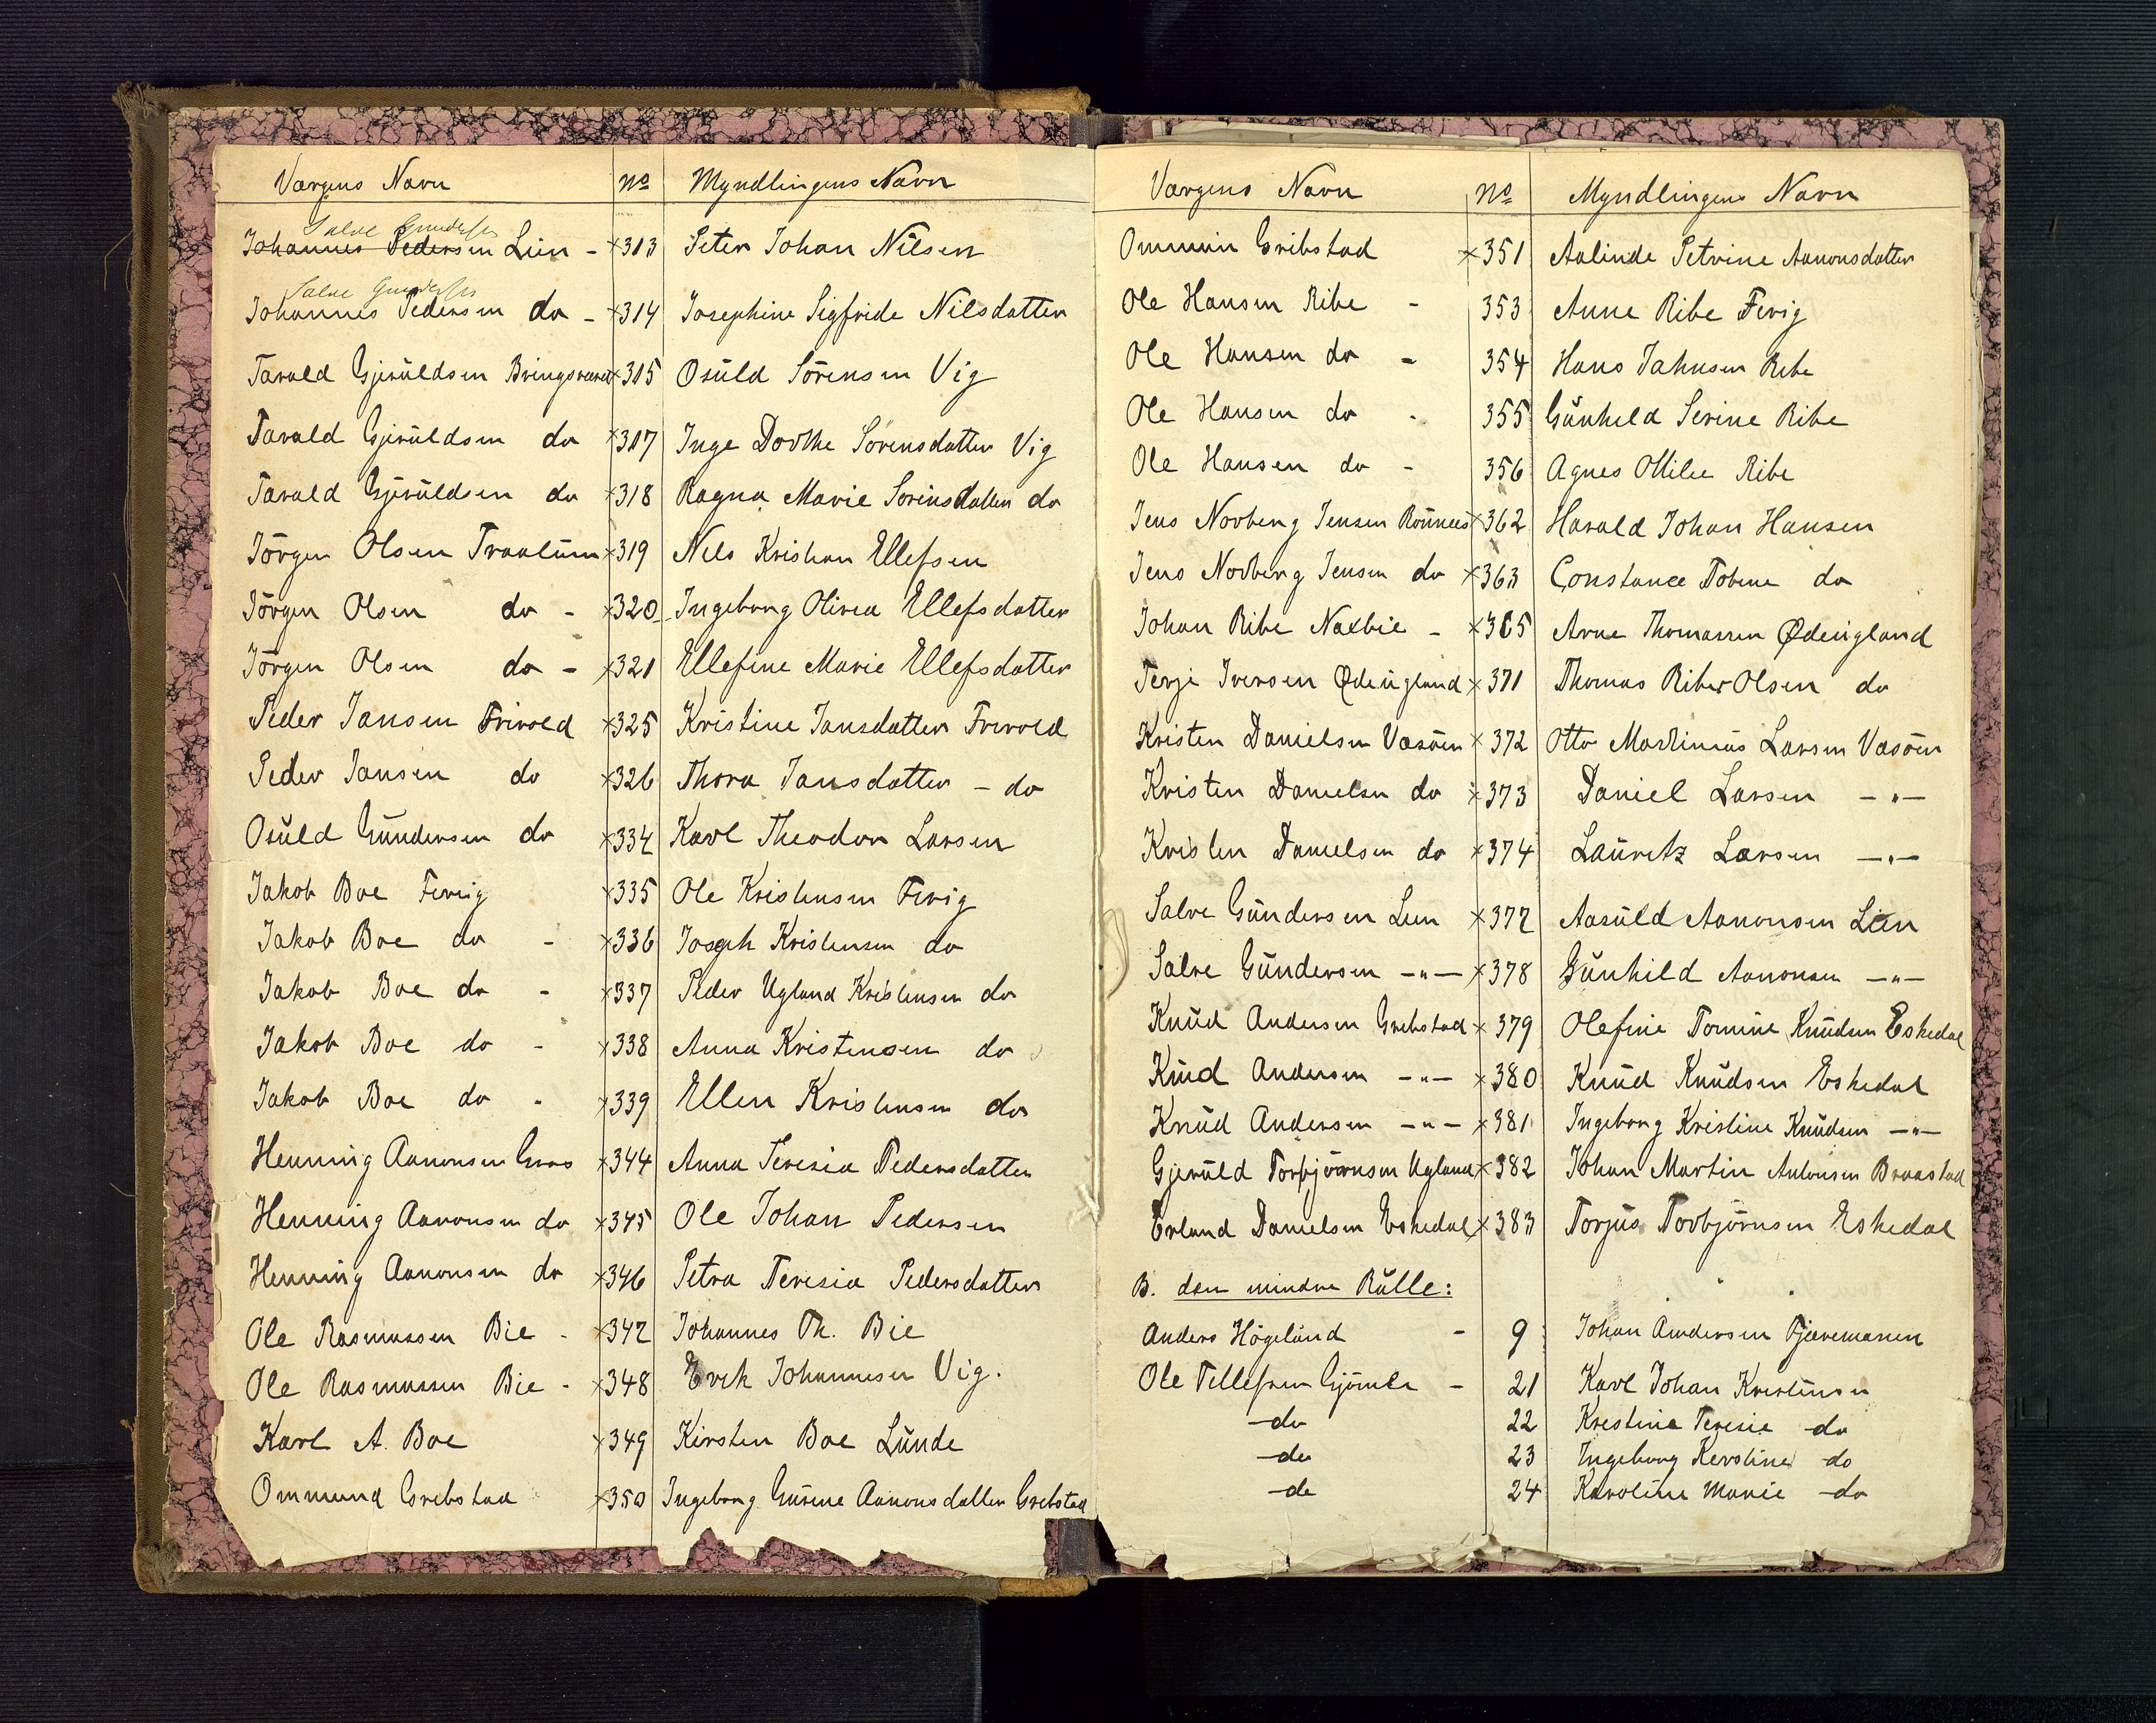 Værgens Navn No Myndlingens Navn
Salve Gunders
Johannes Pedersen Lien - ×313 Peter Johan Nilsen
Salve Gunders
Johannes Pedersen do - ×314 Josephine Sigfride Nilsdatter
Tarald Gjeruldsen Bringsværd ×315 Osuld Sörensen Vig
Tarald Gjeruldsen do ×317 Inge Dorthe Sörensdatter Vig
Tarald Gjeruldsen do ×318 Ragna Marie Sörensdatter do
Jörgen Olsen Traalum ×319 Nils Kristian Ellefsen
Jörgen Olsen do - ×320 Ingeborg Olivia Ellefsdatter
Jörgen Olsen do - ×321 Ellefine Marie Ellefsdatter
Peder Jansen Frivold ×325 Kristine Jansdatter Frivold
Peder Jansen do ×326 Thora Jansdatter - do
Osuld Gundersen do ×334 Karl Theodor Larsen
Jakob Boe Fevig ×335 Ole Kristensen Fevig
Jakob Boe do - ×336 Joseph Kristensen do
Jakob Boe do - ×337 Peder Ugland Kristensen do
Jakob Boe do - ×338 Anna Kristensen do
Jakob Boe do - ×339 Ellen Kristensen do
Henning Aanonsen Groos ×344 Anna Teresia Pedersdatter
Henning Aanonsen do ×345 Ole Johan Pedersen
Henning Aanonsen do ×346 Petra Teresia Pedersdatter
Ole Rasmussen Bie - ×347 Johannes Th. Bie
Ole Rasmussen Bie - ×348 Erik Johannesen Vig.
Karl A. Boe ×349 Kirsten Boe Lunde
Ommund Grebstad ×350 Ingeborg Gurine Aanonsdatter Grebstad
Værgens Navn No Myndlingens Navn
Ommun Gribstad ×351 Aalinde Petrine Aanonsdatter
Ole Hansen Ribe - 353 Anne Ribe Fevig
Ole Hansen do - 354 Hans Jahnsen Ribe
Ole Hansen do - 355 Gunhild Serine Ribe
Ole Hansen do - 356 Agnes Otilie Ribe
Jens Norberg Jensen Rönnes ×362 Harald Johan Hansen
Jens Norberg Jensen do ×363 Constance Tobine do
Johan Ribe Naxbie - ×365 Arne Thomassen Ødeugland
Terje Iversen Ødeugland ×371 Thomas Riber Olsen do
Kristen Danielsen Vasöen ×372 Otto Martinius Larsen Vasöen
Kristen Danielsen do ×373 Daniel Larsen -"-
Kristen Danielsen do ×374 Lauritz Larsen -"-
Salve Gundersen Lien ×377 Aasuld Aanonsen Lien
Salve Gundersen -"- ×378 Gunhild Aanonsen -"-
Knud Andersen Grebstad ×379 Olefine Tomine Knudsen Eskedal
Knud Andersen -"- ×380 Knud Knudsen Eskedal
Knud Andersen -"- ×381 Ingeborg Kristine Knudsen -"-
Gjeruld Torbjörnsen Ugland ×382 Johan Martin Antonsen Braastad
Erland Danielsen Eskedal ×383 Torjus Torbjörnsen Eskedal
B. den mindre Rulle:
Anders Högelund - 9 Johan Andersen Tjæremanen
Ole Tellefsen Gjömle - 21 Karl Johan Kristensen
-do 22 Kristine Teresie -do
-do 23 Ingeborg Kerstine -do
-do 24 Karoline Marie -do